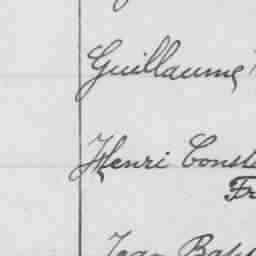 Guillaume
Henri Const
Fr
Jean Bap